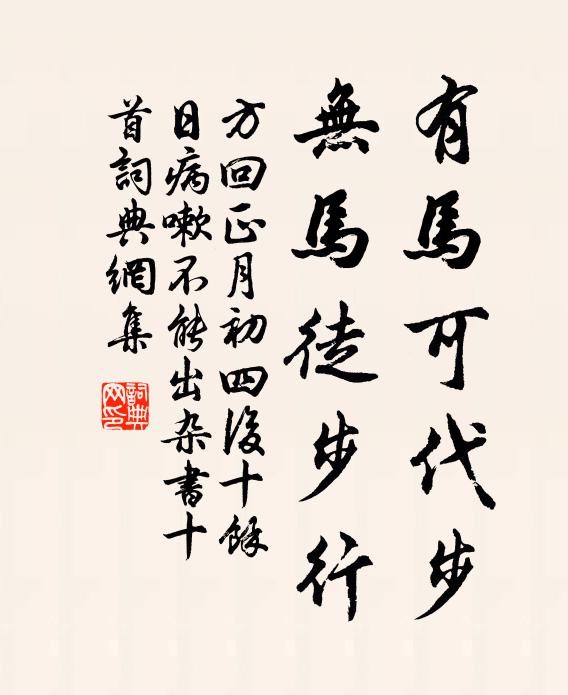 有馬可代步
無馬徒步行
方回正月初四後十餘
日病嗽不能出杂書十
首詞典網集
詞典
网印